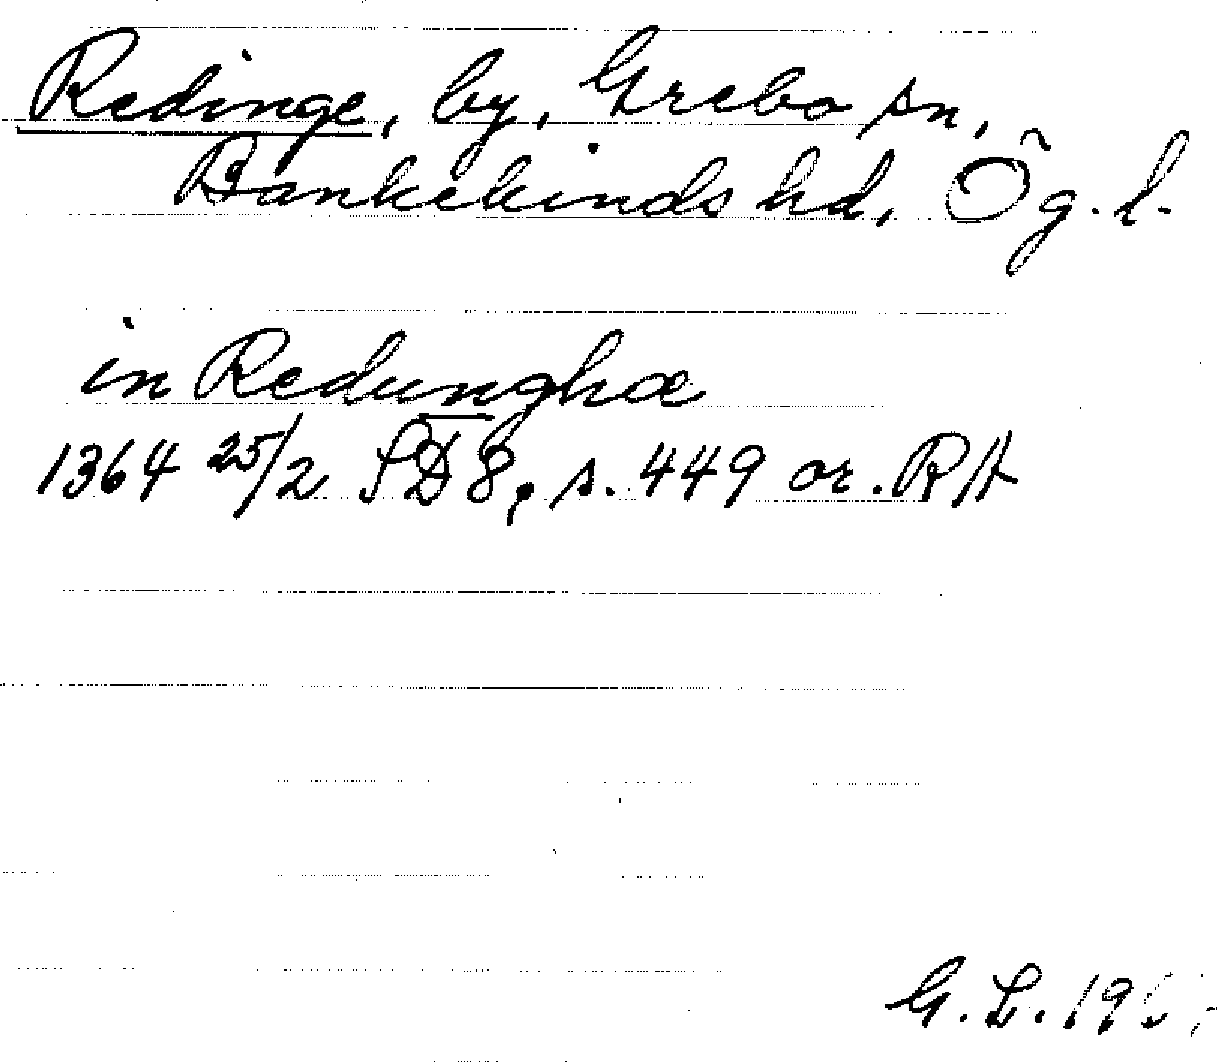 Redinge, by, Grebo sn,
Bankekinds hd, Ög. l.
in Redunghæ
1364 25/2 SD 8, s. 449 or. RA
G. L.